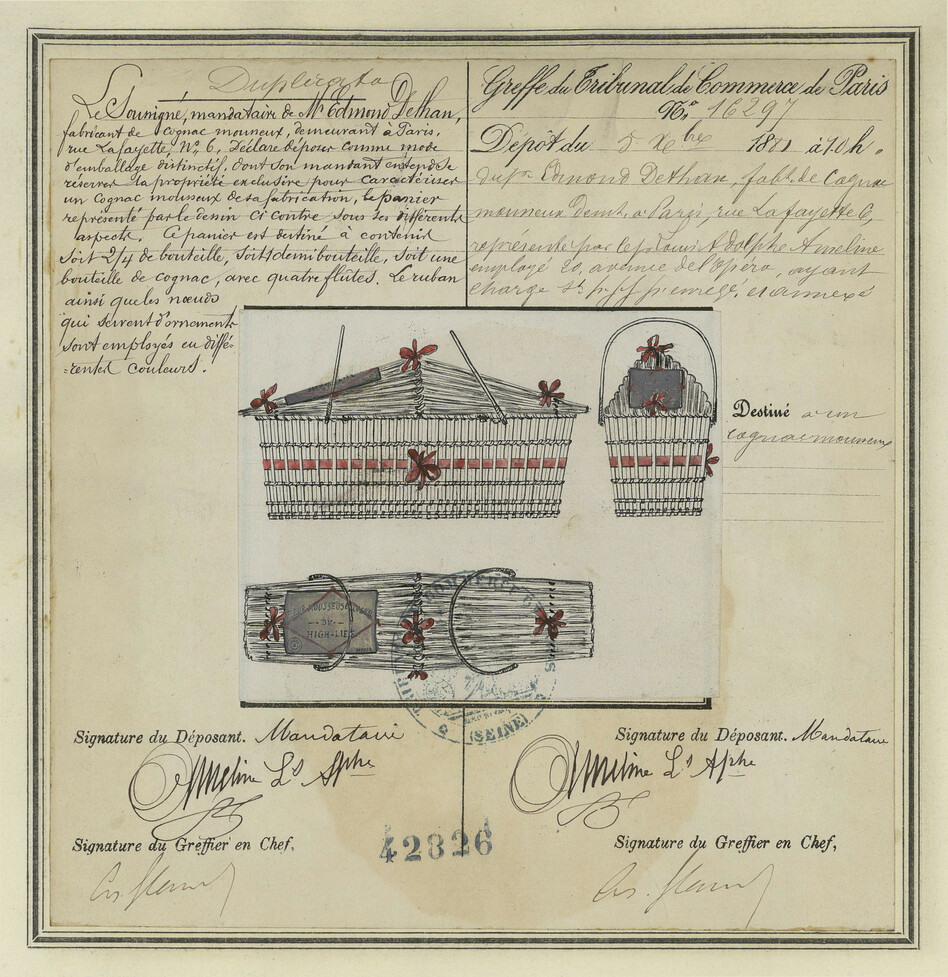 Duplicata
Le Soussigné, mandataire de Mr Edmond Dethan,
fabricant de Cognac mousseux, demeurant à Paris,
rue Lafayette, No 6, Déclare déposer comme mode
d'emballage distinctif, dont son mandant entend se
réserver la propriété exclusive pour caractériser
un Cognac mousseux de sa fabrication, le panier
représenté par le dessin ci contre sous ses différents
aspects. Ce panier est destiné à contenir
soit 2/4 de bouteille, soit 1 demi bouteille, soit une
bouteille de cognac, avec quatre flûtes. Le ruban
ainsi que les nœuds
qui servent d'ornements
sont employés en diffé-
-rentes couleurs.
Greffe du Tribunal de Commerce de Paris
No. 16297
Dépôt du 5 Xbre 1881 à 10 h.
Edmond Dethan, fabt. de Cognac
mousseux Demt. à Paris, rue Lafayette 6,
représenté par le sr Louis Adolphe Ameline
employé 20, avenue de l'opéra, ayant
charge et annexé
Destiné à un
cognac mousseux
MOUSSEUSE
DU
HIGH-LIFE
(SEINE)
Signature du Déposant. Mandataire
Ameline Ls Aphe
Signature du Greffier en Chef,
42826
Signature du Déposant. Mandataire
Ameline Ls Aphe
Signature du Greffier en Chef,